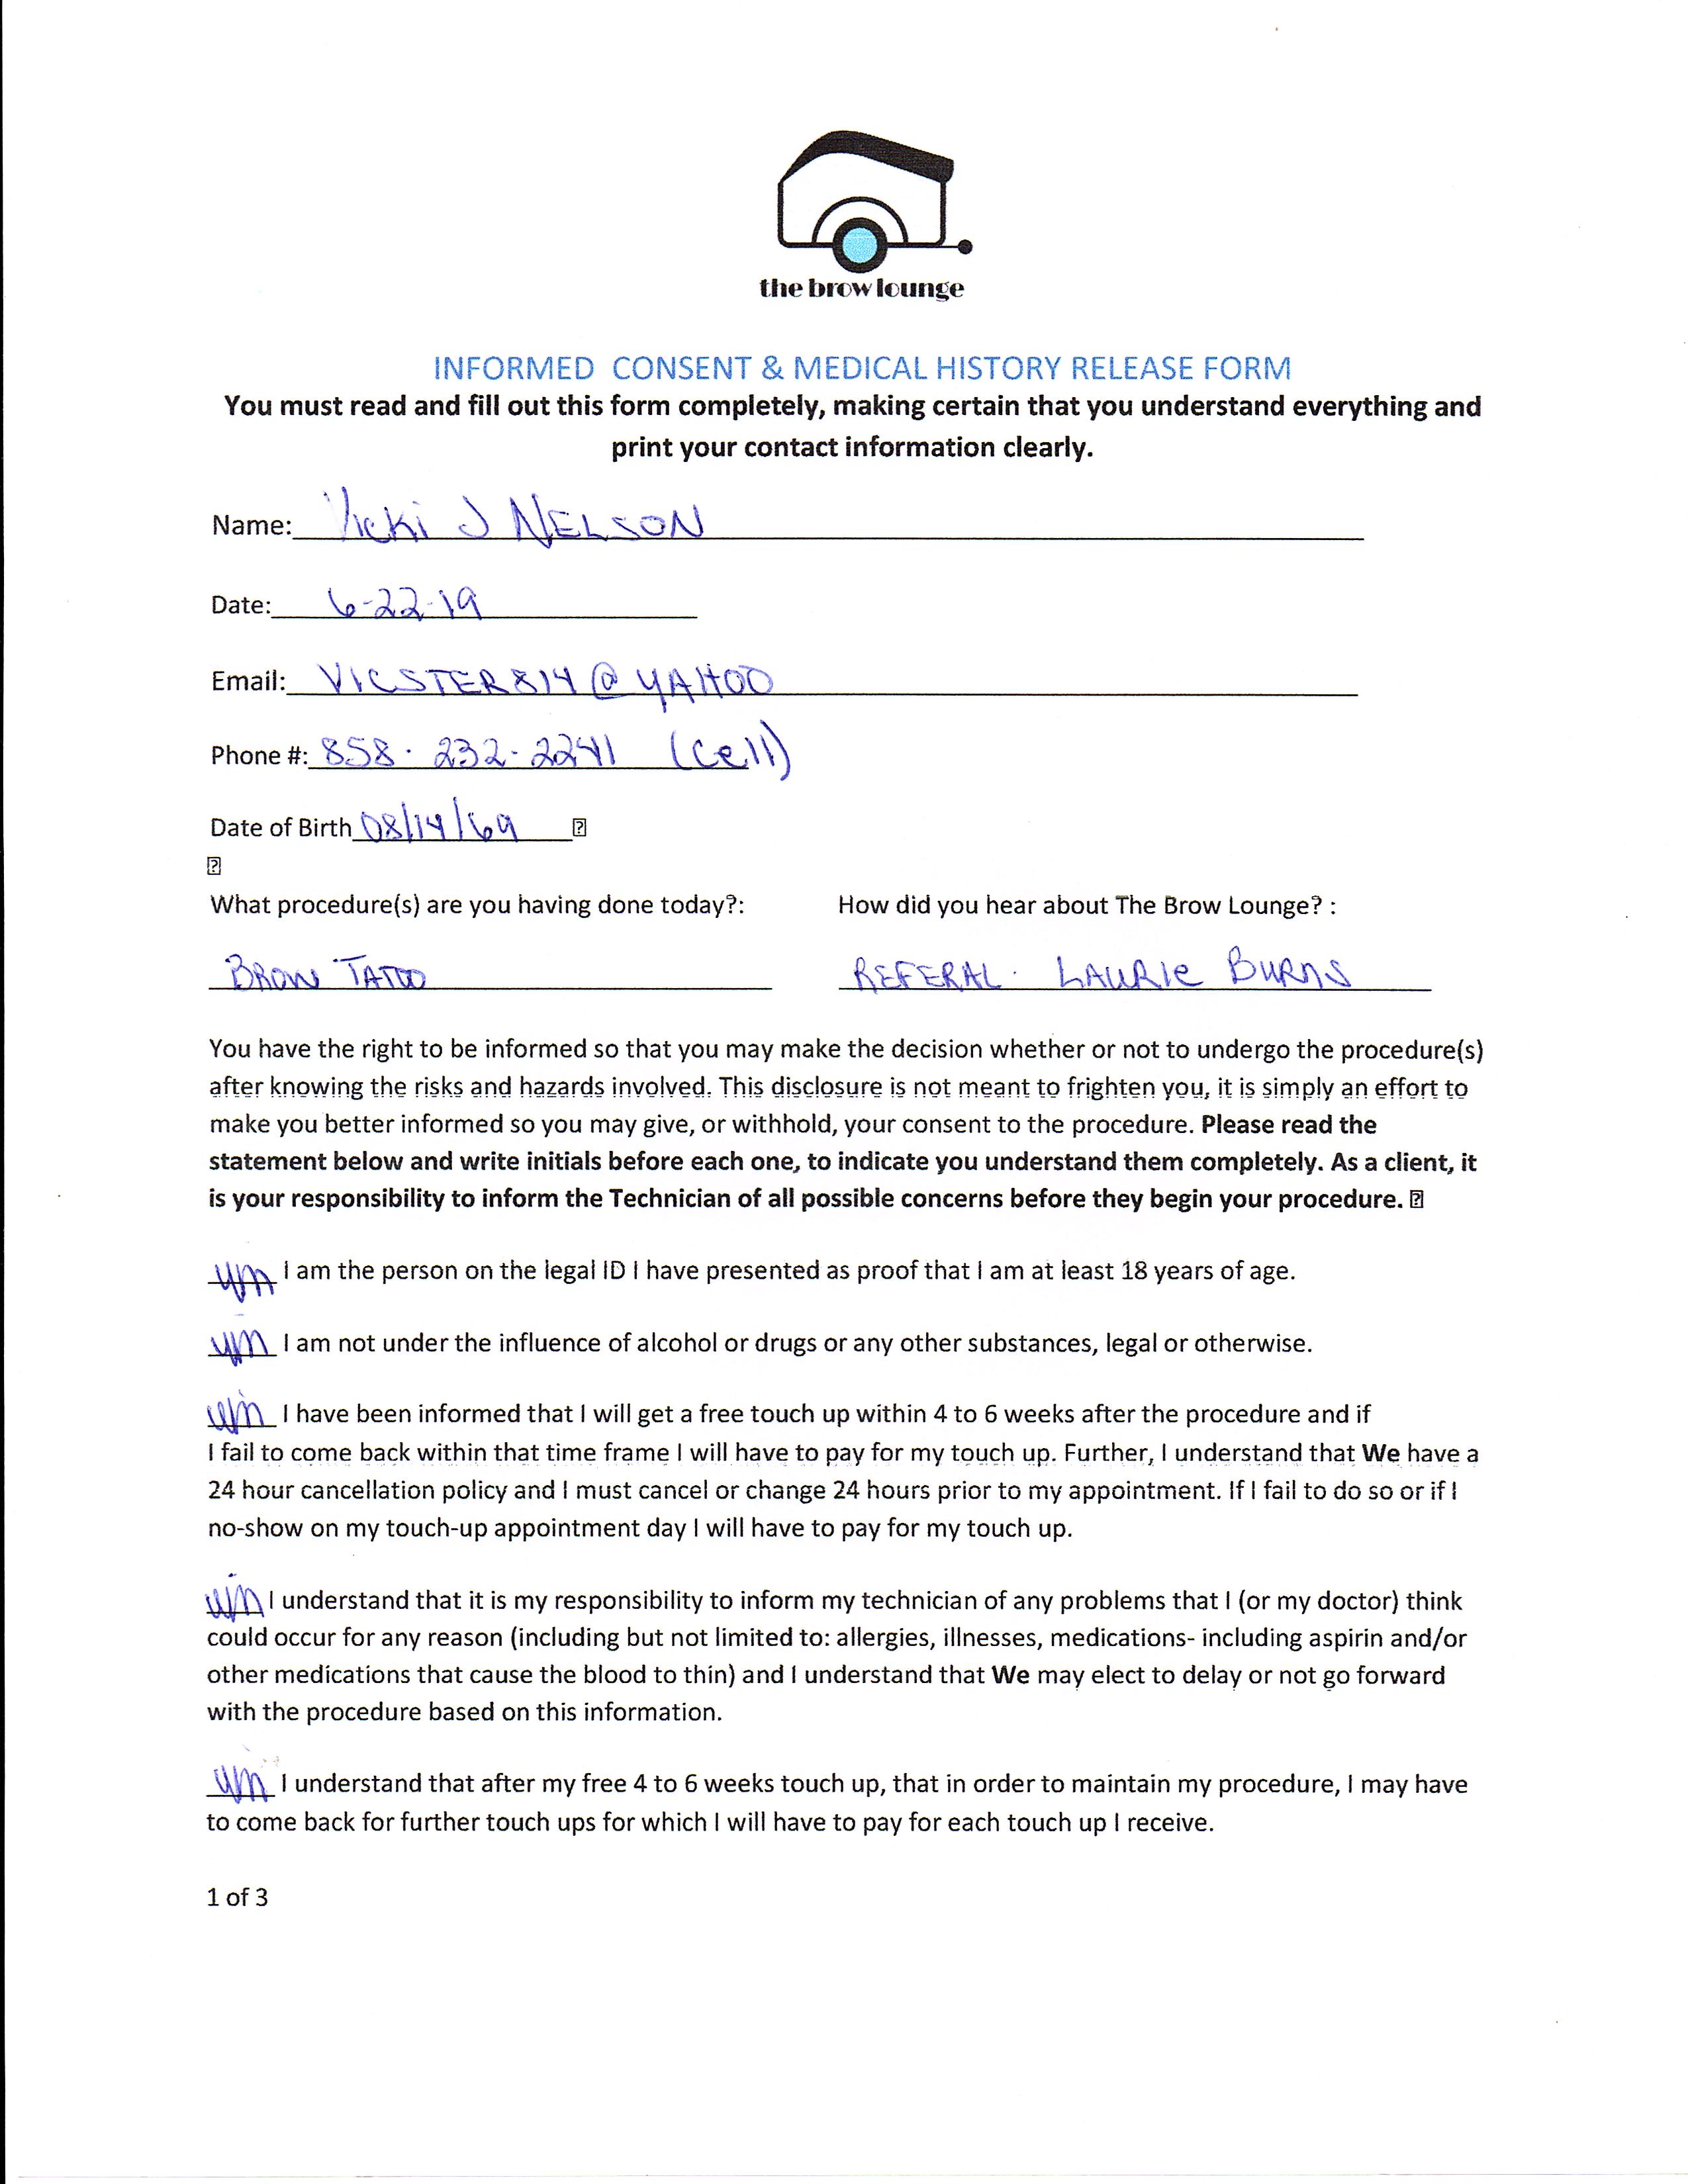 the brow lounge
INFORMED CONSENT & MEDICAL HISTORY RELEASE FORM
You must read and fill out this form completely, making certain that you understand everything and
print your contact information clearly.
Name: Vicki J NELSON
Date: 6-22-19
Email: VICSTER814@YAHOO
Phone #: 858-232-2241 (cell)
Date of Birth 08/14/69
What procedure(s) are you having done today?: How did you hear about The Brow Lounge? :
BROW TATOO REFERAL - LAURIE BURNS
You have the right to be informed so that you may make the decision whether or not to undergo the procedure(s)
after knowing the risks and hazards involved. This disclosure is not meant to frighten you, it is simply an effort to
make you better informed so you may give, or withhold, your consent to the procedure. Please read the
statement below and write initials before each one, to indicate you understand them completely. As a client, it
is your responsibility to inform the Technician of all possible concerns before they begin your procedure.
I am the person on the legal ID I have presented as proof that I am at least 18 years of age.
I am not under the influence of alcohol or drugs or any other substances, legal or otherwise.
I have been informed that I will get a free touch up within 4 to 6 weeks after the procedure and if
I fail to come back within that time frame I will have to pay for my touch up. Further, I understand that We have a
24 hour cancellation policy and I must cancel or change 24 hours prior to my appointment. If I fail to do so or if I
no-show on my touch-up appointment day I will have to pay for my touch up.
I understand that it is my responsibility to inform my technician of any problems that I (or my doctor) think
could occur for any reason (including but not limited to: allergies, illnesses, medications- including aspirin and/or
other medications that cause the blood to thin) and I understand that We may elect to delay or not go forward
with the procedure based on this information.
I understand that after my free 4 to 6 weeks touch up, that in order to maintain my procedure, I may have
to come back for further touch ups for which I will have to pay for each touch up I receive.
1 of 3